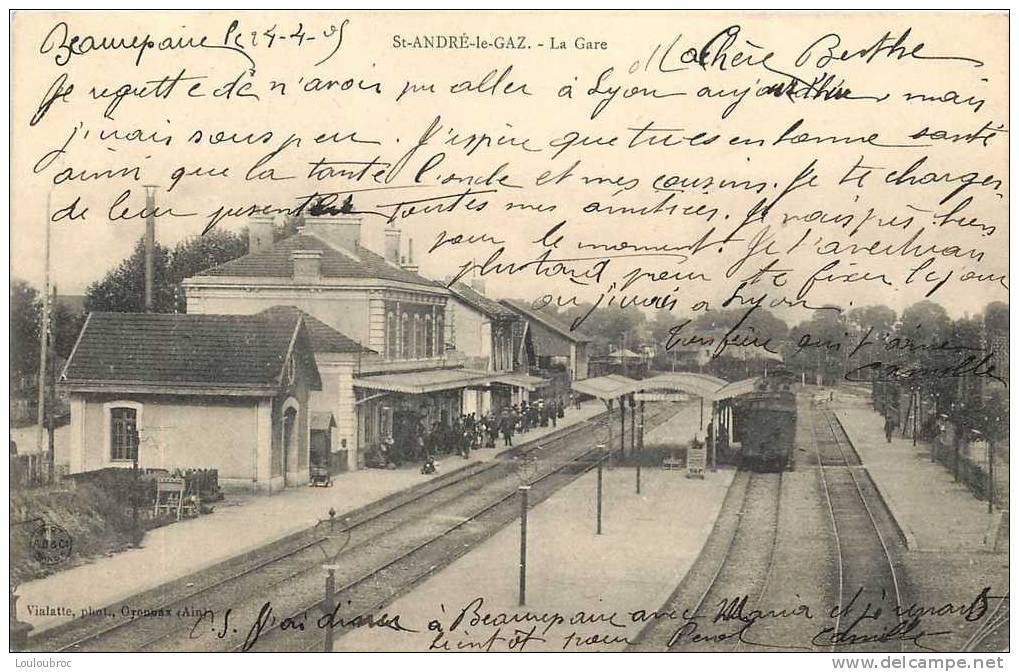 Beaurepaire le 24-4-05
St-ANDRÉ-le-GAZ. - La Gare
Ma Chère Berthe
Je regrette de n'avoir pu aller à Lyon aujourd'hui mais
j'irais sous peu. J'espère que tu es en bonne santé
ainsi que la tante l'oncle et mes cousins. Je te charge
de leur présenter toutes mes amitiés. Je vais très bien
pour le moment. Je t'avertirai
plus tard pour te fixer le jour
où j'irais à Lyon
Ton frère qui t'aime
Camille
Vialatte, phot., Oyonnax (Ain)
P.S. J'ai dîner à Beaurepaire avec Maria et je repars
bientôt pour
Camille
Louloubroc
www.delcampe.net